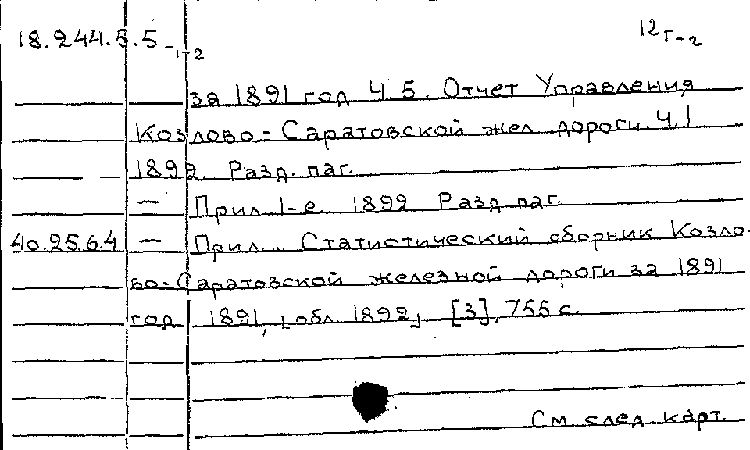 18.244.5.5-1-2 12г-2
за 1891 год Ч 5. Отчет Управления
Козлово-Саратовской жел дороги. Ч. 1
1892. Разд. паг.
— Прил 1-е. 1892 Разд паг
40.25.6.4 — Прил.. Статистический сборник Козло-
во-Саратовской железной дороги за 1891
год 1891, [обл. 1892] [3], 755 с.
См след. карт.